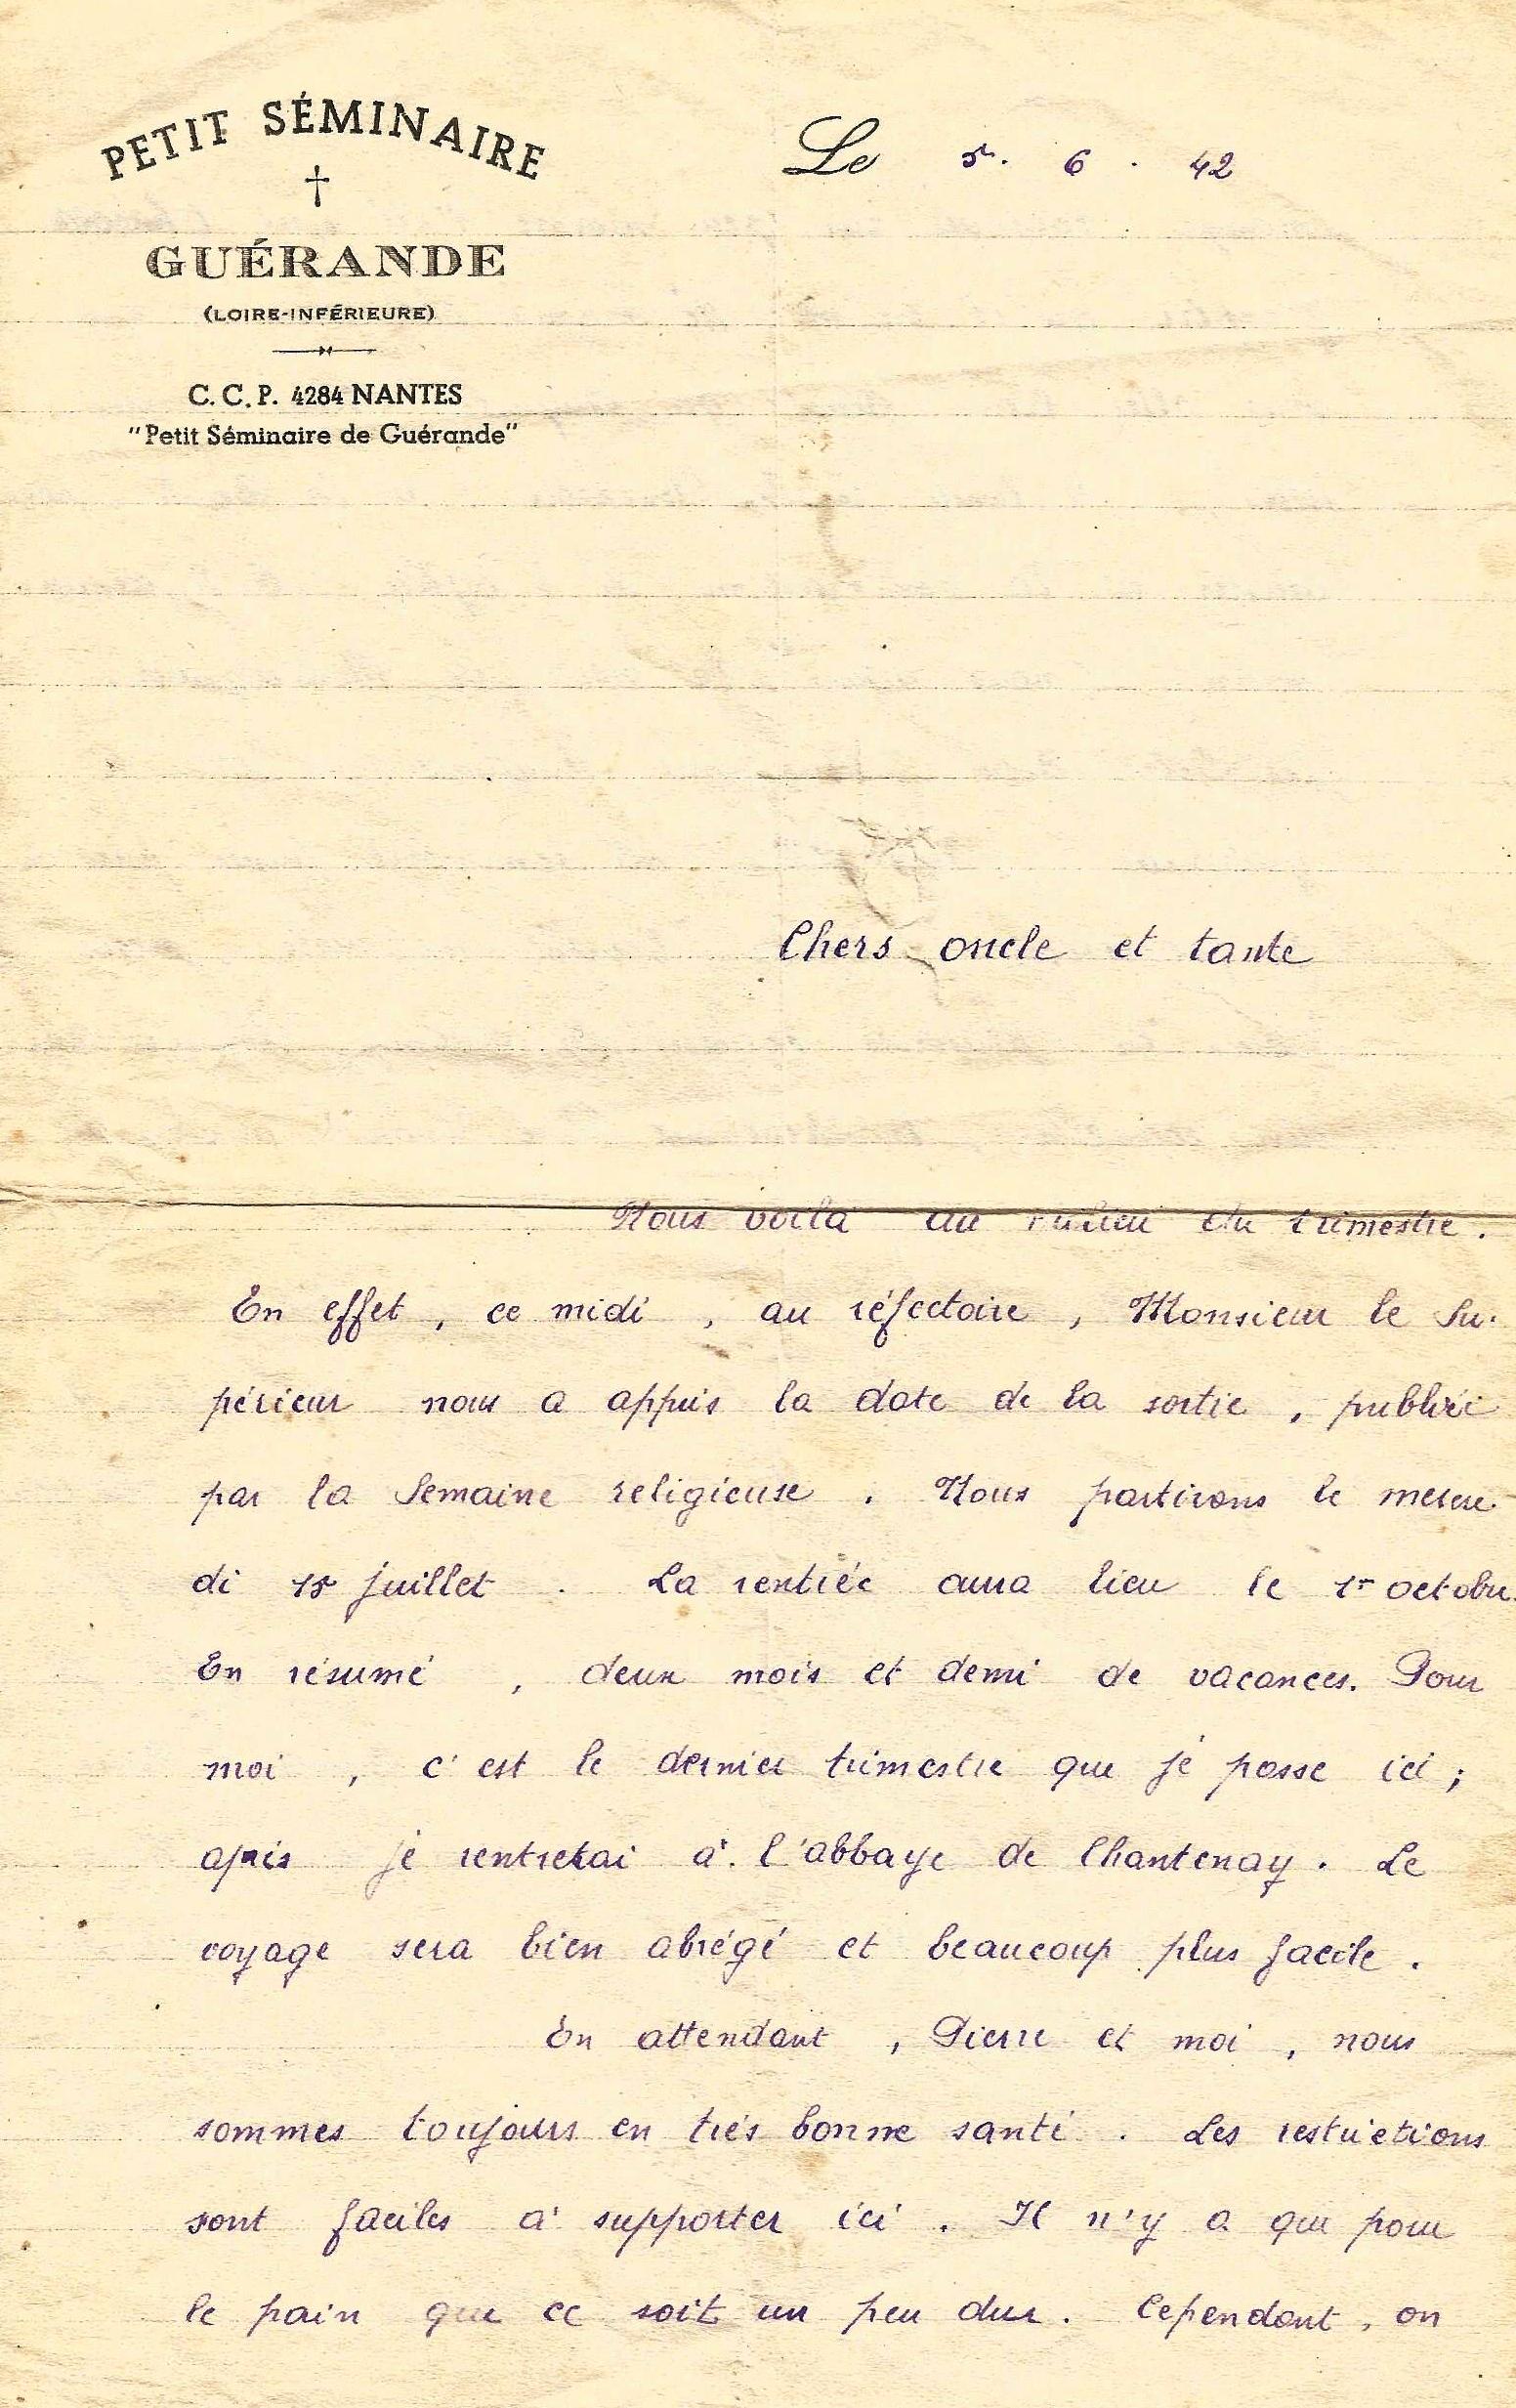 PETIT SÉMINAIRE
GUÉRANDE
(LOIRE-INFÉRIEURE)
C. C. P. 4284 NANTES
"Petit Séminaire de Guérande"
Le 5. 6. 42
Chers oncle et tante
Nous voilà au milieu du trimestre.
En effet, ce midi, au réfectoire, Monsieur le Su-
périeur nous a appris la date de la sortie, publiée
par la Semaine religieuse. Nous partirons le mercre-
di 15 juillet. La rentrée aura lieu le 1er octobre.
En résumé, deux mois et demi de vacances. Pour
moi, c'est le dernier trimestre que je passe ici ;
après je rentrerai à l'abbaye de Chantenay. Le
voyage sera bien abrégé et beaucoup plus facile.
En attendant, Pierre et moi, nous
sommes toujours en très bonne santé. Les restrictions
sont faciles à supporter ici. Il n'y a que pour
le pain que ce soit un peu dur. Cependant, on